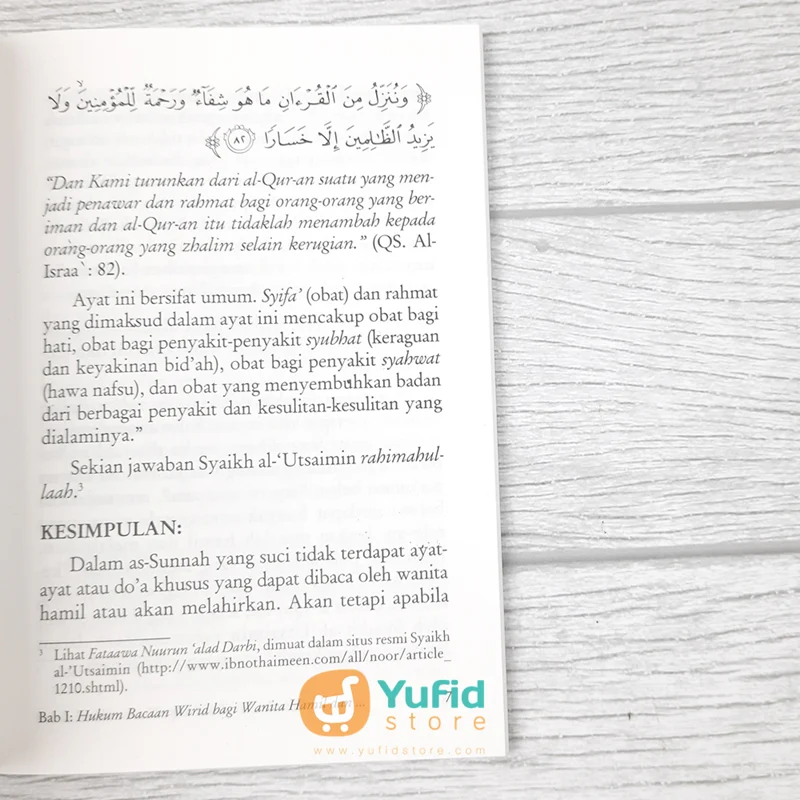 ﴿ وَنُنَزِّلُ مِنَ الْقُرْءَانِ مَا هُوَ شِفَآءٌ وَرَحْمَةٌ لِّلْمُؤْمِنِينَ ۙ وَلَا
يَزِيدُ الظَّـٰلِمِينَ إِلَّا خَسَارًا ۝٨٢ ﴾
“Dan Kami turunkan dari al-Qur-an suatu yang men-
jadi penawar dan rahmat bagi orang-orang yang ber-
iman dan al-Qur-an itu tidaklah menambah kepada
orang-orang yang zhalim selain kerugian.” (QS. Al-
Israa`: 82).
Ayat ini bersifat umum. Syifa’ (obat) dan rahmat
yang dimaksud dalam ayat ini mencakup obat bagi
hati, obat bagi penyakit-penyakit syubhat (keraguan
dan keyakinan bid’ah), obat bagi penyakit syahwat
(hawa nafsu), dan obat yang menyembuhkan badan
dari berbagai penyakit dan kesulitan-kesulitan yang
dialaminya.”
Sekian jawaban Syaikh al-‘Utsaimin rahimahul-
laah.³
KESIMPULAN:
Dalam as-Sunnah yang suci tidak terdapat ayat-
ayat atau do’a khusus yang dapat dibaca oleh wanita
hamil atau akan melahirkan. Akan tetapi apabila
³ Lihat Fataawa Nuurun ‘alad Darbi, dimuat dalam situs resmi Syaikh
al-’Utsaimin (http://www.ibnothaimeen.com/all/noor/article_
1210.shtml).
Bab I: Hukum Bacaan Wirid bagi Wanita Hamil dan ... 7
Yufid
store
www.yufidstore.com